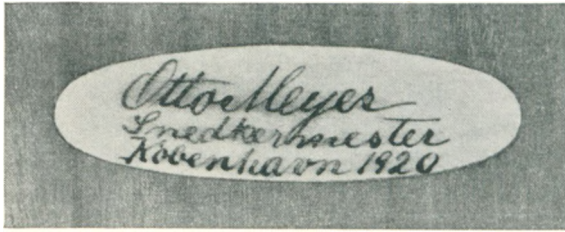 Otto Meyer
Snedkermester
København 1920